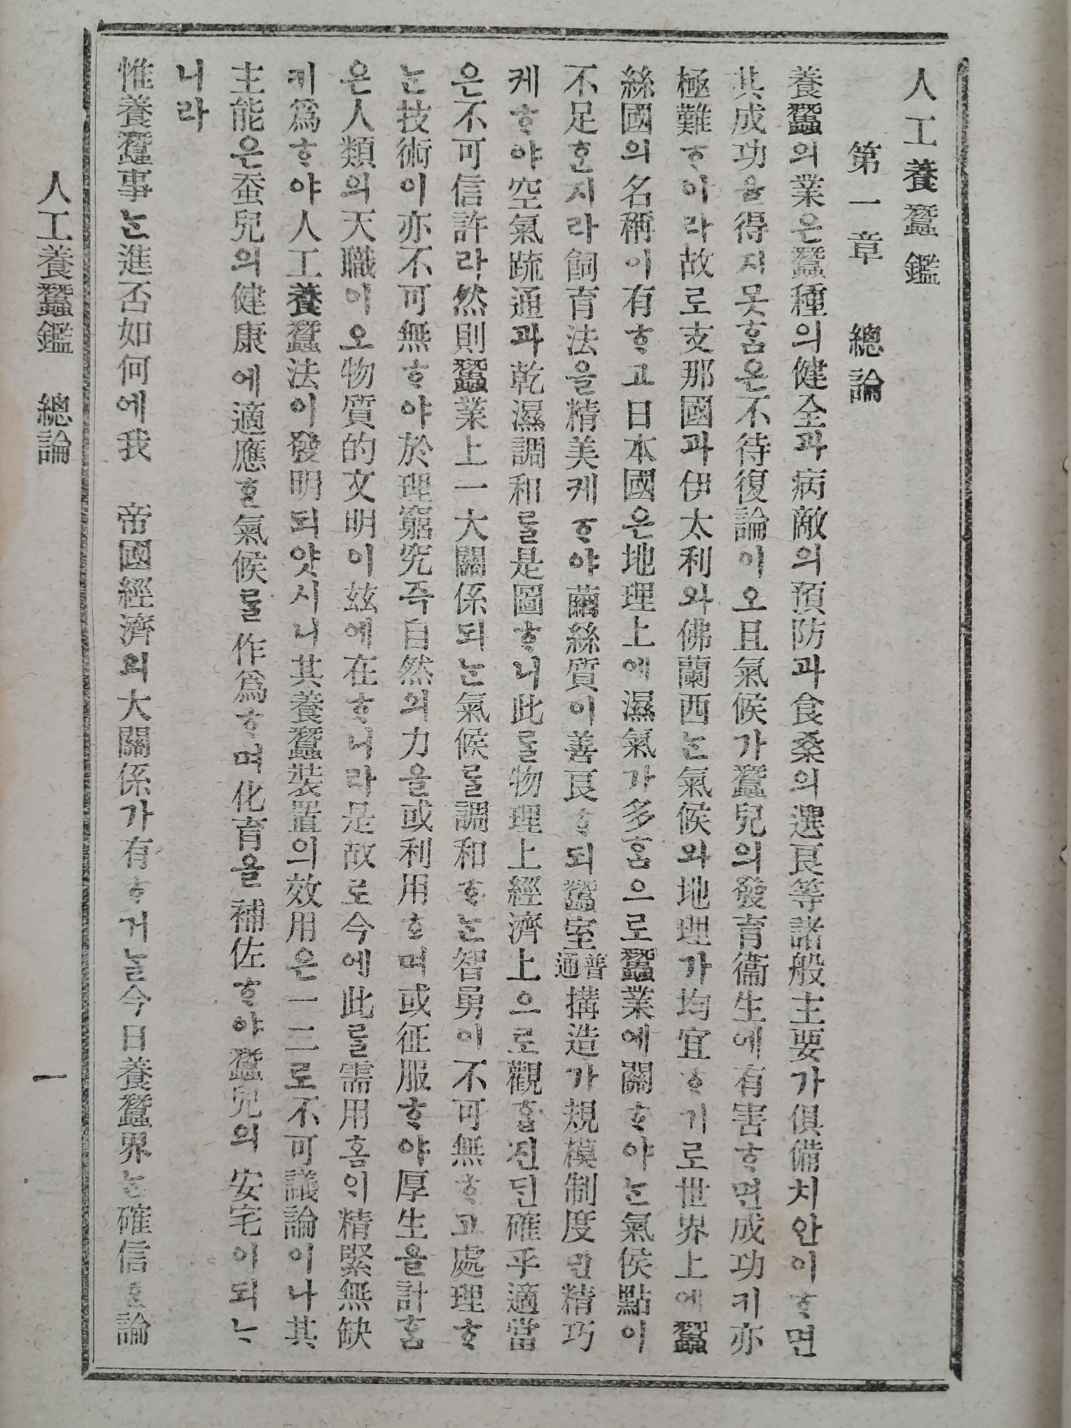 人工養蠶鑑
第一章 總論
養蠶의業은蠶種의健全과病敵의預防과食桑의選良等諸般主要가俱備치안이ᄒᆞ면
其成功을得지못홈은不待復論이오且氣候가蠶兒의發育衞生에有害ᄒᆞ면成功키亦
極難ᄒᆞ이라故로支那國과伊太利와佛蘭西ᄂᆞᆫ氣候와地理가均宜ᄒᆞ기로世界上에蠶
絲國의名稱이有ᄒᆞ고日本國은地理上에濕氣가多홈으로蠶業에關ᄒᆞ야ᄂᆞᆫ氣侯點이
不足ᄒᆞᆫ지라飼育法을精美케ᄒᆞ야繭絲質이善良ᄒᆞ되蠶室普通搆造가規模制度란精巧
케ᄒᆞ야空氣疏通과乾濕調和를是圖ᄒᆞ니此를物理上經濟上으로觀ᄒᆞᆯ진딘確乎適當
은不可信許라然則蠶業上一大關係되ᄂᆞᆫ氣候를調和ᄒᆞᄂᆞᆫ智勇이不可無ᄒᆞ고處理ᄒᆞ
ᄂᆞᆫ技術이亦不可無ᄒᆞ야於理窮究즉自然의力을或利用ᄒᆞ며或征服ᄒᆞ야厚生을計홈
은人類의天職이오物質的文明이玆에在ᄒᆞ니라是故로今에此를需用홈의精緊無缺
키爲ᄒᆞ야人工養蠶法이發明되얏시니其養蠶裝置의效用은一二로不可議論이나其
主能은蚕兒의健康에適應ᄒᆞᆫ氣候를作爲ᄒᆞ며化育을補佐ᄒᆞ야蠶兒의安宅이되ᄂᆞ
니라
惟養蠶事ᄂᆞᆫ進否如何에我 帝國經濟의大關係가有ᄒᆞ거늘今日養蠶界ᄂᆞᆫ確信ᄒᆞᆫ論
人工養蠶鑑 總論
一